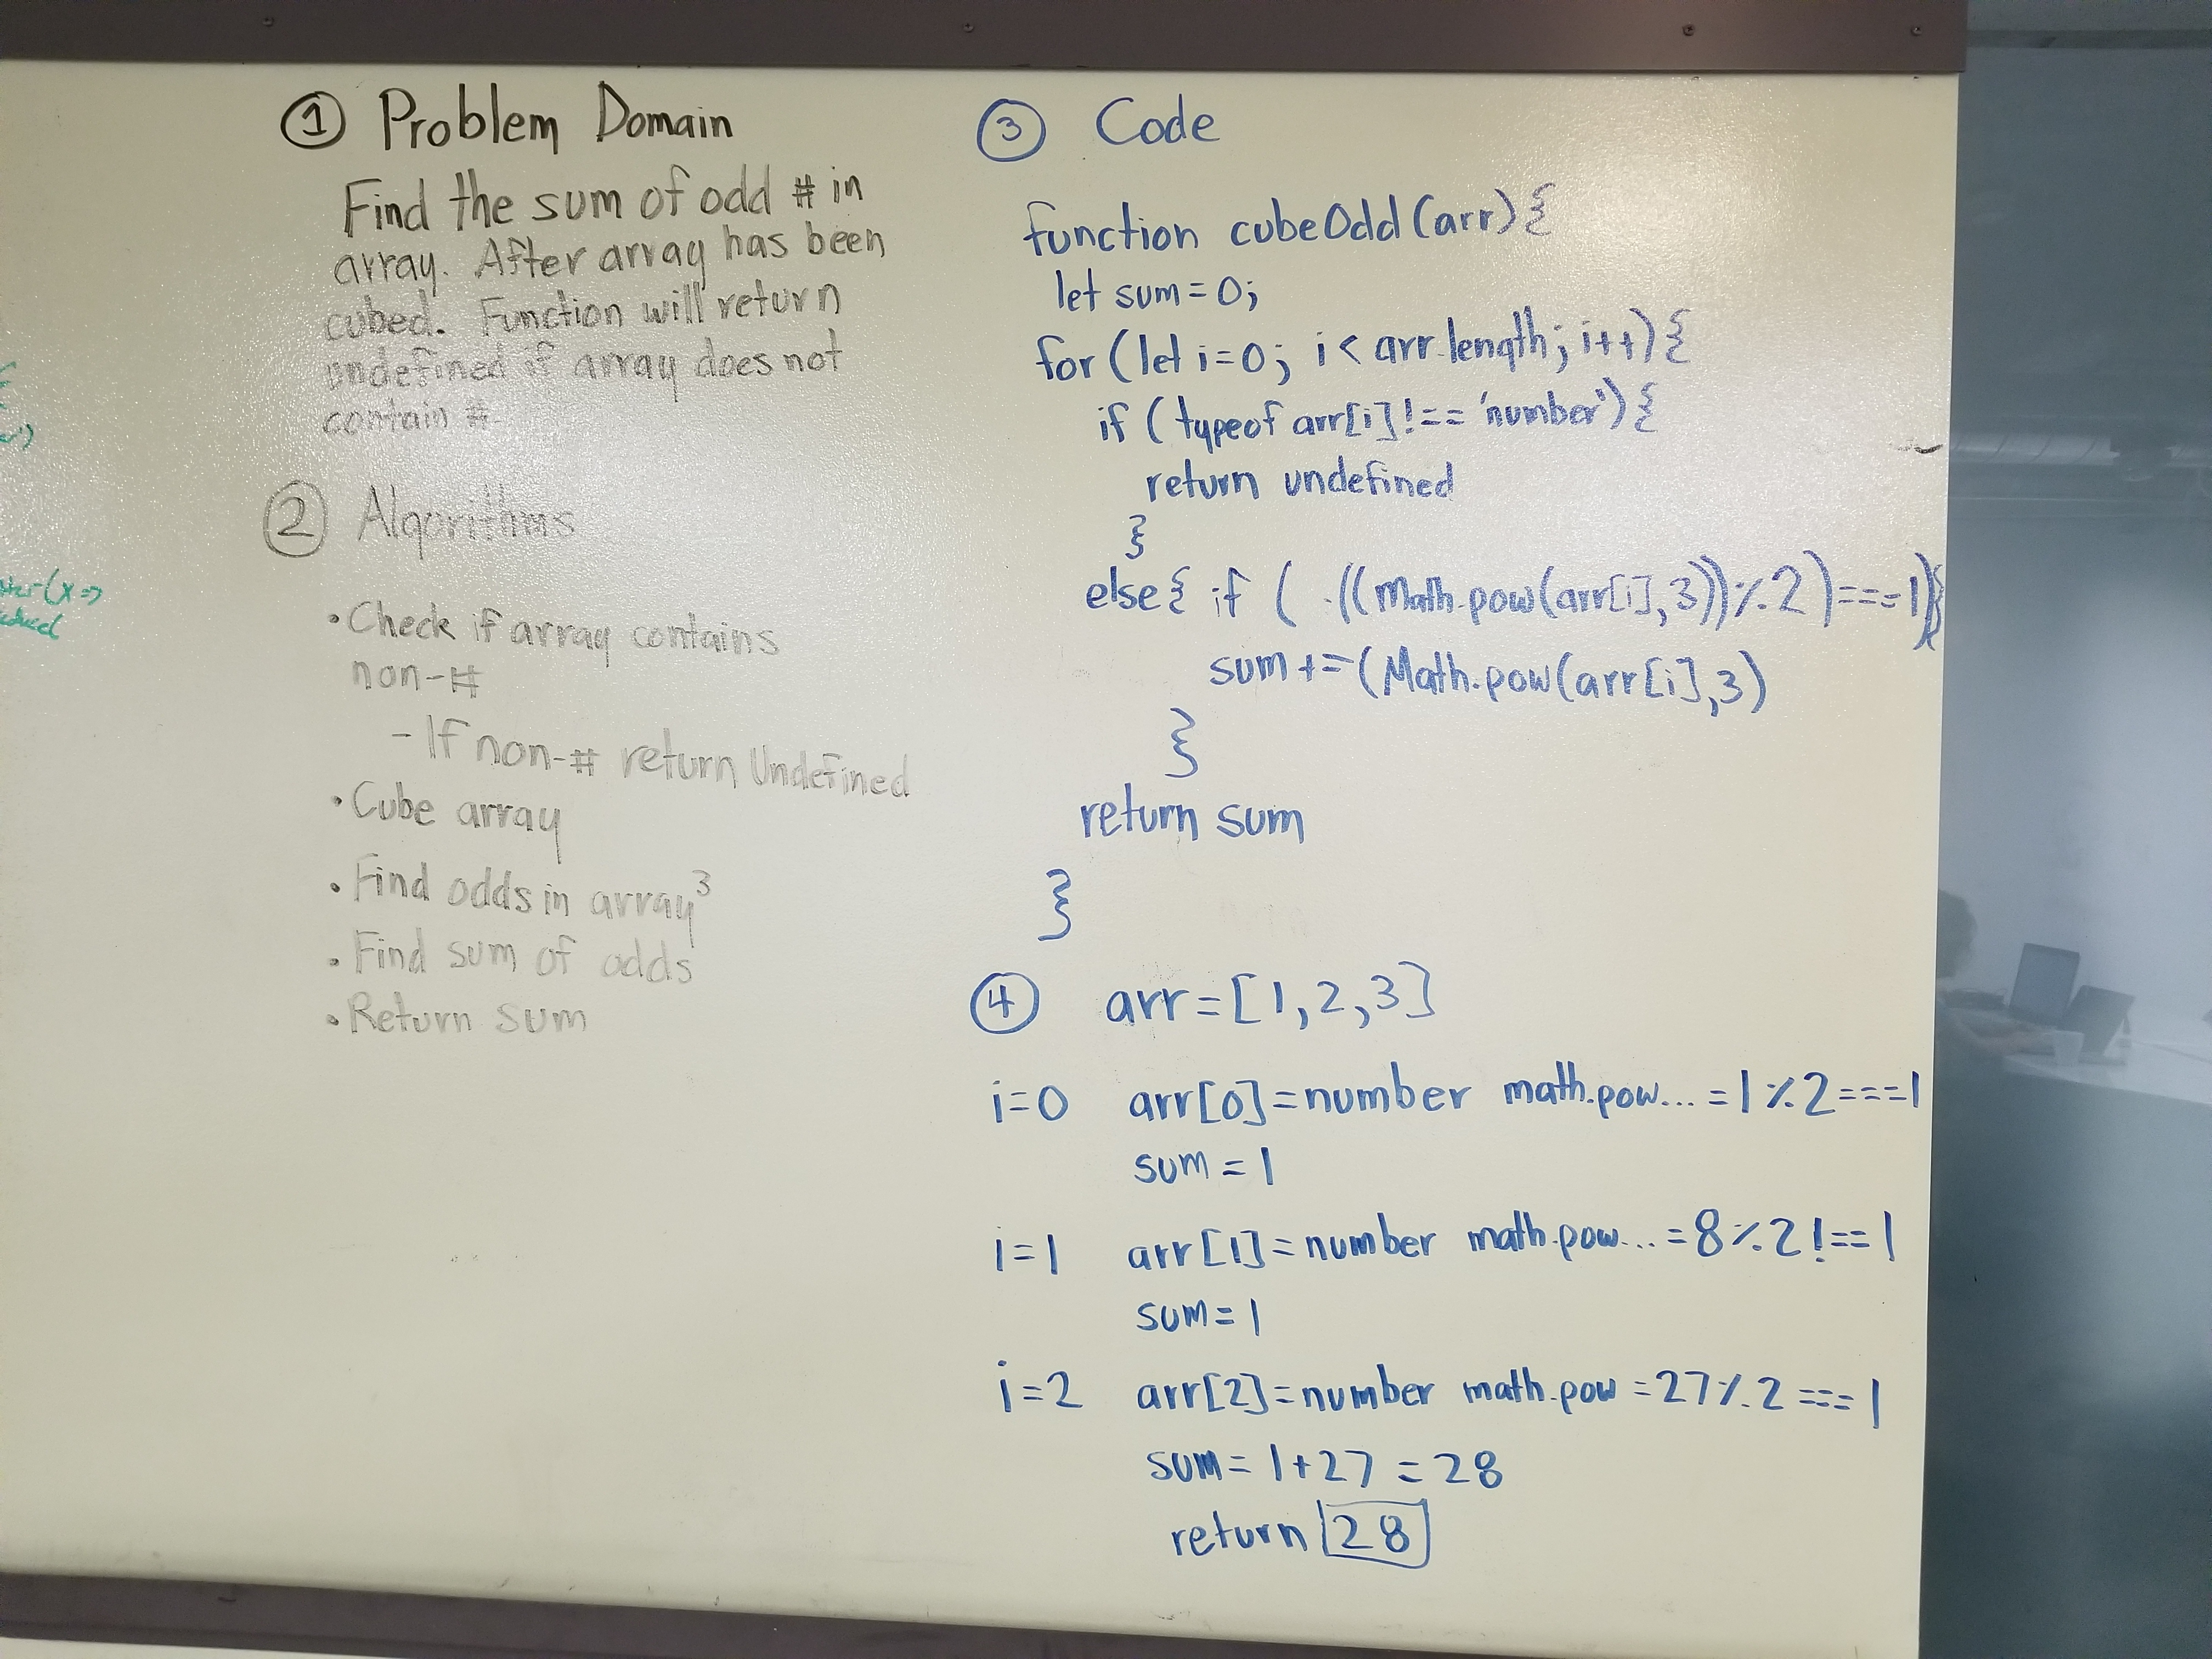 ① Problem Domain
Find the sum of odd # in
array. After array has been
cubed. Function will return
undefined if array does not
contain #.
② Algorithms
• Check if array contains
non-#
- If non-# return Undefined
• Cube array
• Find odds in array³
• Find sum of odds
• Return sum
③ Code
function cubeOdd(arr){
let sum=0;
for (let i=0; i< arr.length; i++){
if (typeof arr[i]!== 'number'){
return undefined
}
else{ if ( ((Math.pow(arr[i],3))%2)===1){
sum+=(Math.pow(arr[i],3)
}
return sum
}
④ arr=[1,2,3]
i=0 arr[0]=number math.pow...=1%2===1
sum=1
i=1 arr[1]=number math.pow...=8%2!==1
sum=1
i=2 arr[2]=number math.pow=27%2===1
sum=1+27=28
return 28
(x =>